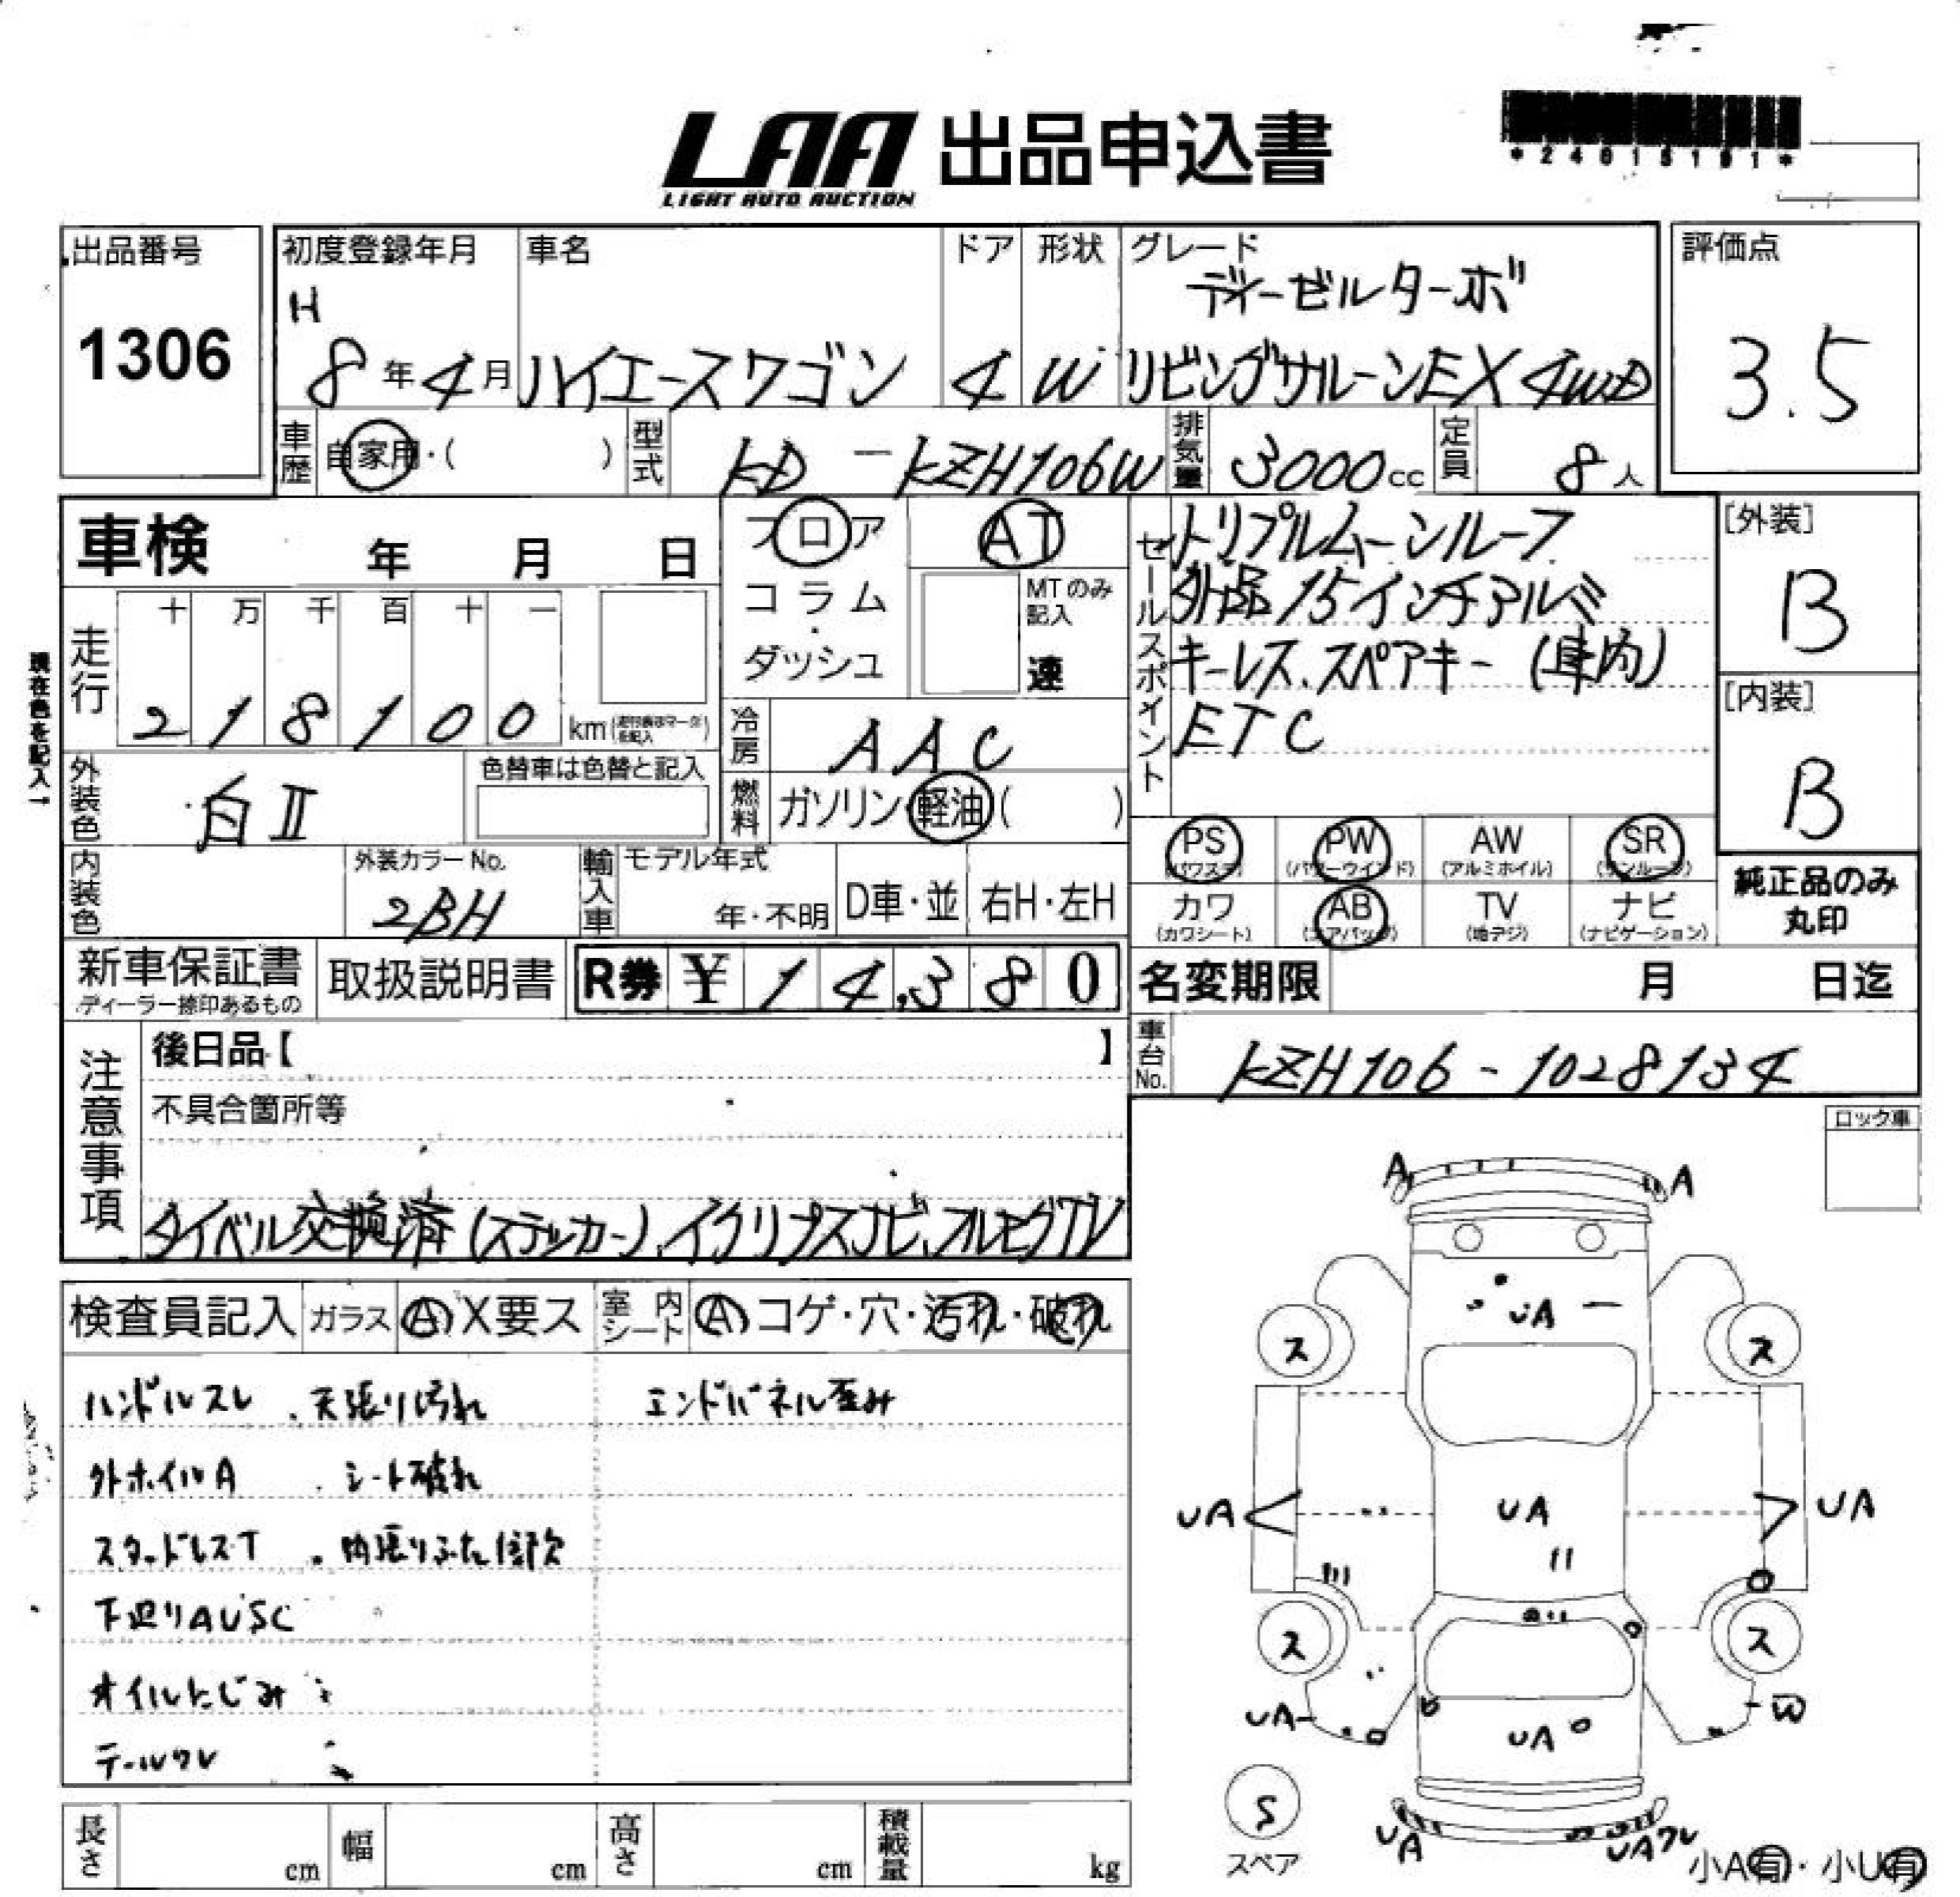 LAA 出品申込書
LIGHT AUTO AUCTION
出品番号
1306
初度登録年月
H
8年4月
車名
ハイエースワゴン
ドア
4
形状
W
グレード
ディーゼルターボ
リビングサルーンEX 4WD
評価点
3.5
車歴 自家用・( )
型式 KD-KZH106W
排気量 3000cc
定員 8人
車検 年 月 日
走行
十 万 千 百 十 一
2 1 8 1 0 0 km
現在色を記入→
フロア
コラム
・
ダッシュ
AT
MTのみ
記入
速
冷房 AAC
燃料 ガソリン・軽油( )
外装色 白Ⅱ
色替車は色替と記入
内装色
外装カラーNo.
2BH
輸入車
モデル年式
年・不明
D車・並
右H・左H
セールスポイント
トリプルムーンルーフ
外品15インチアルミ
キーレス、スペアキー(車内)
ETC
[外装]
B
[内装]
B
PS (パワステ)
PW (パワーウインド)
AW (アルミホイル)
SR (サンルーフ)
カワ (カワシート)
AB (エアバッグ)
TV (地デジ)
ナビ (ナビゲーション)
純正品のみ
丸印
新車保証書
ディーラー捺印あるもの
取扱説明書
R券 ¥14,380
名変期限 月 日迄
車台No. KZH106-1028134
注意事項
後日品【 】
不具合箇所等
タイベル交換済(ステッカー)、イクリプスナビ、フルセグTV
ロック車
検査員記入 ガラス A X要ス 室内シート A コゲ・穴・汚れ・破れ
ハンドルスレ ・天張り汚れ エンドパネル歪み
外ホイルA ・シート破れ
スタッドレスT ・内張りふた1部欠
下廻りAUSC
オイルにじみ
テールワレ
A A
UA
ス ス
UA UA UA
ス ス
UA W
UA
S
スペア
UA UAワレ
小A有・小U有
長さ cm 幅 cm 高さ cm 積載量 kg